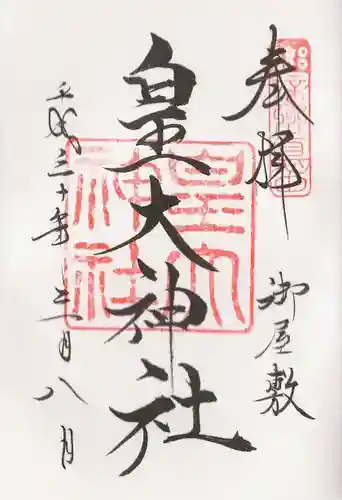 奉拝
御屋敷
皇大神社
皇大神社
平成三十年 三月 八月